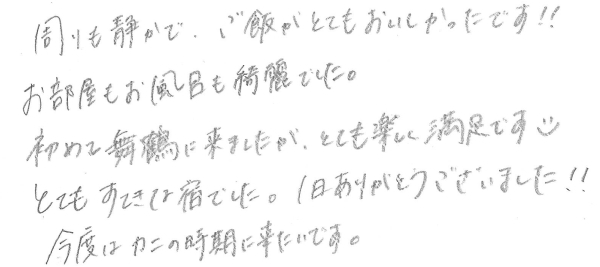 周りも静かで、ご飯がとてもおいしかったです!!
お部屋もお風呂も綺麗でした。
初めて舞鶴に来ましたが、とても楽しく満足です☺
とてもすてきな宿でした。1日ありがとうございました!!
今度はカニの時期に来たいです。